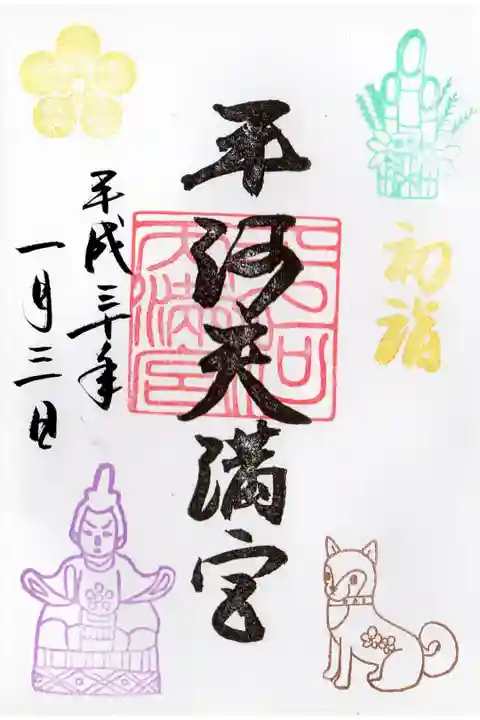 初詣
平河天満宮
平河
天満宮
平成三十年
一月三日